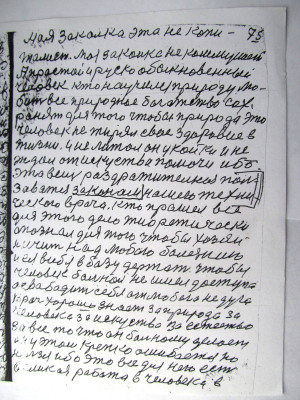 75
Мая Закалка эта не капи-
талист. Моя закалка не коммунист
А простой руско обыкновенный
человек кто научился природу лю-
бить все природное богатство сах
ранять для того чтобы природа Это
человек не тирял свае здоровие в
жизни. и не латал он у койки и не
ждал от искуства помочи ибо
Это вещ раздрожителная поль
заватся законам нашего техни
ческого врача. кто прашел все
для этого дело тиоретически
опознал для того чтобы хозяй-
ничит над любою болезнию
и ея в себя в базу держать. чтобы
человек больной не имел доступа
освабадит себя от любого недуга
врач хорошо знает за природа за
человека за искуство за естество
за все то что он больному делает
он у этом крепко ошибается но
нелзя ибо это все для него есть
великая работа в человека в